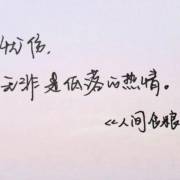 忧伤，
无非是低落的热情。
《人间食粮